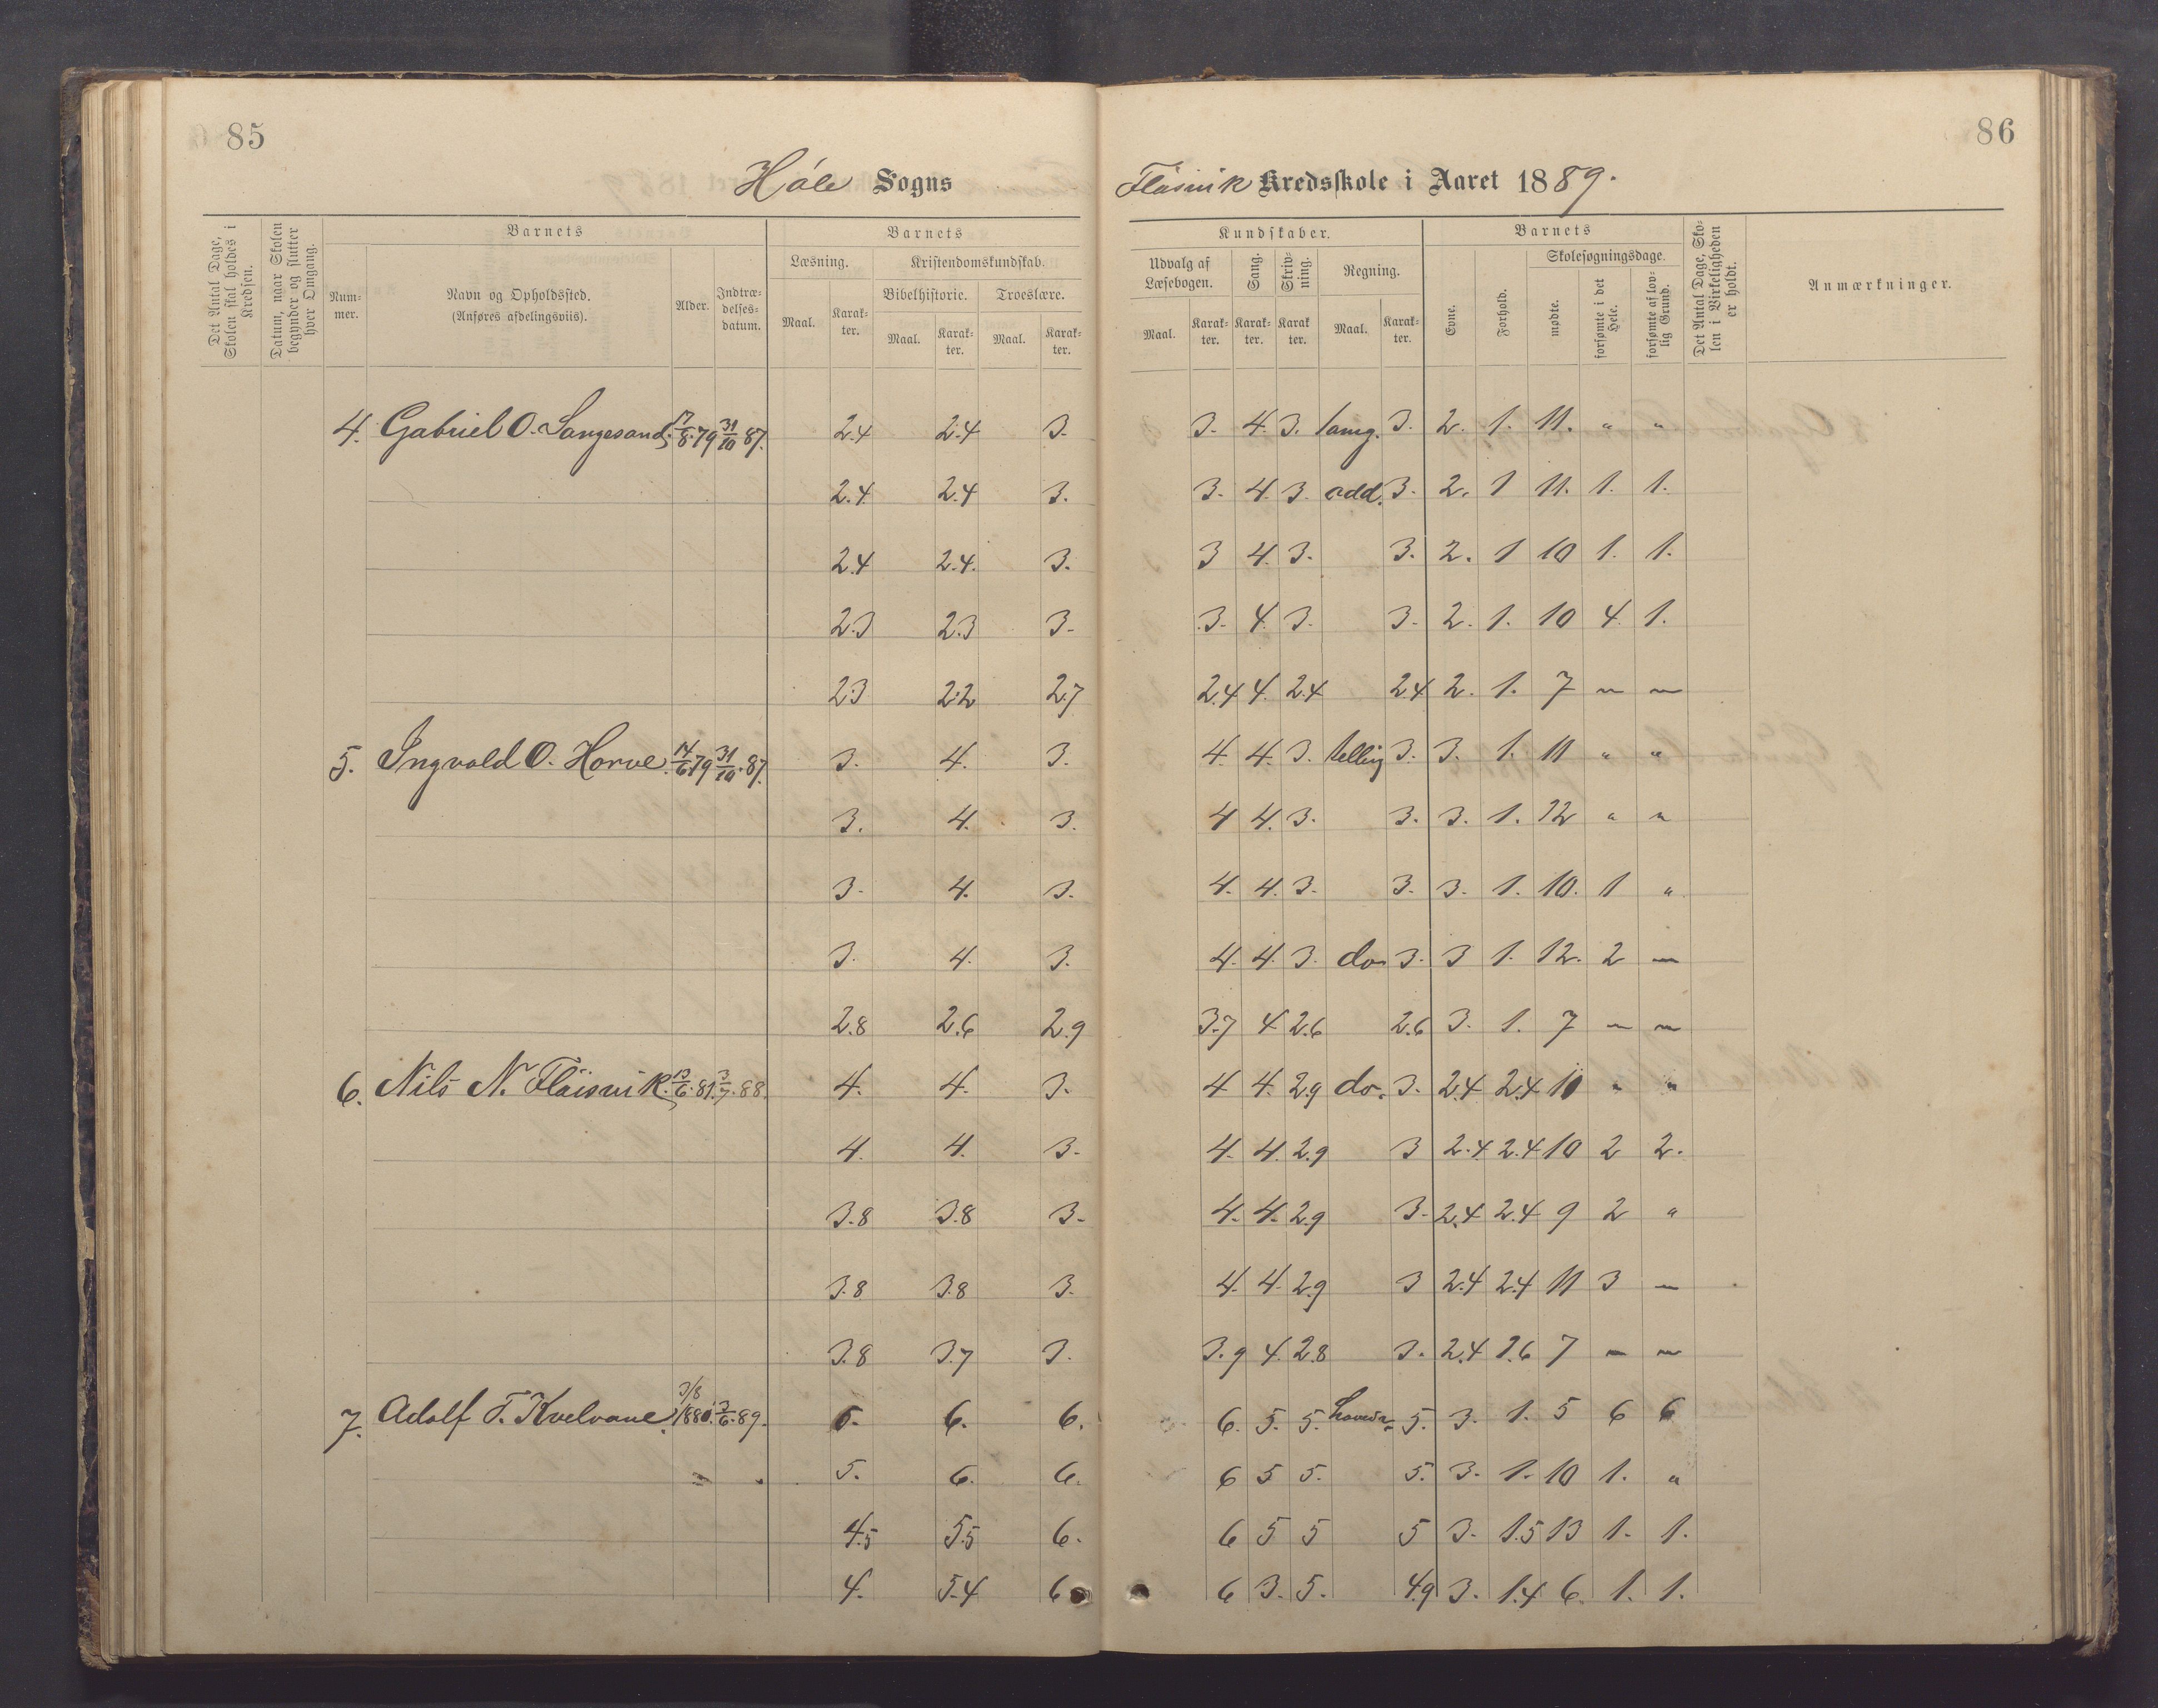 85
86
Höle Sogns
Fløisvik Kredsskole i Aaret 1889.
Det Antal Dage, Skolen skal holdes i Kredsen.
Datum, naar Skolen begynder og slutter hver Omgang.
Barnets
Num-mer.
Navn og Opholdssted. (Anføres afdelingsviis).
Alder.
Indtræ-delses-datum.
Barnets
Læsning.
Maal.
Karak-ter.
Kristendomskundskab.
Bibelhistorie.
Maal.
Karak-ter.
Troeslære.
Maal.
Karak-ter.
Kundskaber.
Udvalg af Læsebogen.
Maal.
Karak-ter.
Sang.
Karak-ter.
Skriv-ning.
Karak ter.
Regning.
Maal.
Karak-ter.
Barnets
Evne.
Forhold.
Skolesøgningsdage.
mødte.
forsømte i det Hele.
forsømte af lov-lig Grund.
Det Antal Dage, Sko-len i Virkeligheden er holdt.
Anmærkninger.
4. Gabriel O. Langesand. 17/8.79 31/10 87. 2.4 2.4 3. 3. 4. 3. 3. 2. 1. 11. " "
2.4 2.4 3. 3. 4. 3. add. 3. 2. 1 11. 1. 1.
2.4 2.4. 3. 3 4. 3. 3. 2. 1 10 1. 1.
2.3 2.3 3. 3. 4. 3. 3. 2. 1. 10 4. 1.
2.3 2.2 2.7 2.4 4. 2.4 2.4 2. 1. 7 — —
5. Ingvald O. Horve. 14/6 79 31/10.87. 3. 4. 3. 4. 4. 3. telling 3. 3. 1. 11 " "
3. 4. 3. 4 4. 3. 3. 3. 1. 12 " "
3. 4. 3. 4. 4. 3. 3. 3. 1. 10. 1 "
3. 4. 3. 4. 4. 3. do 3. 3 1. 12. 2 —
2.8 2.6 2.9 3.7 4 2.6 2.6 3. 1. 7 — —
6. Nils N. Fløisvik. 13/6.81. 3/7.88. 4. 4. 3. 4 4. 2.9 do. 3. 2.4 2.4 10 " "
4. 4. 3. 4. 4. 2.9 3 2.4 2.4 10 2 2.
3.8 3.8 3. 4. 4. 2.9 3. 2.4 2.4 9 2 "
3.8 3.8 3. 4. 4. 2.9 3 2.4 2.4 11 3 —
3.8 3.7 3. 3.9 4. 2.8 3. 2.4 2.6 7 — —
7. Adolf T. Kvelvane. 3/8 1880. 3/6.89. 6. 6. 6. 5. 5. 5. 3. 1. 5 6 6
5. 6. 6. 6 5 5. 5. 3. 1. 10 1. "
4.5 5.5 6. 6 5 5 5 3. 1.5 13 1. 1.
4. 5.4 6 6 3. 5. 4.9 3. 1.4 6. 1. 1.